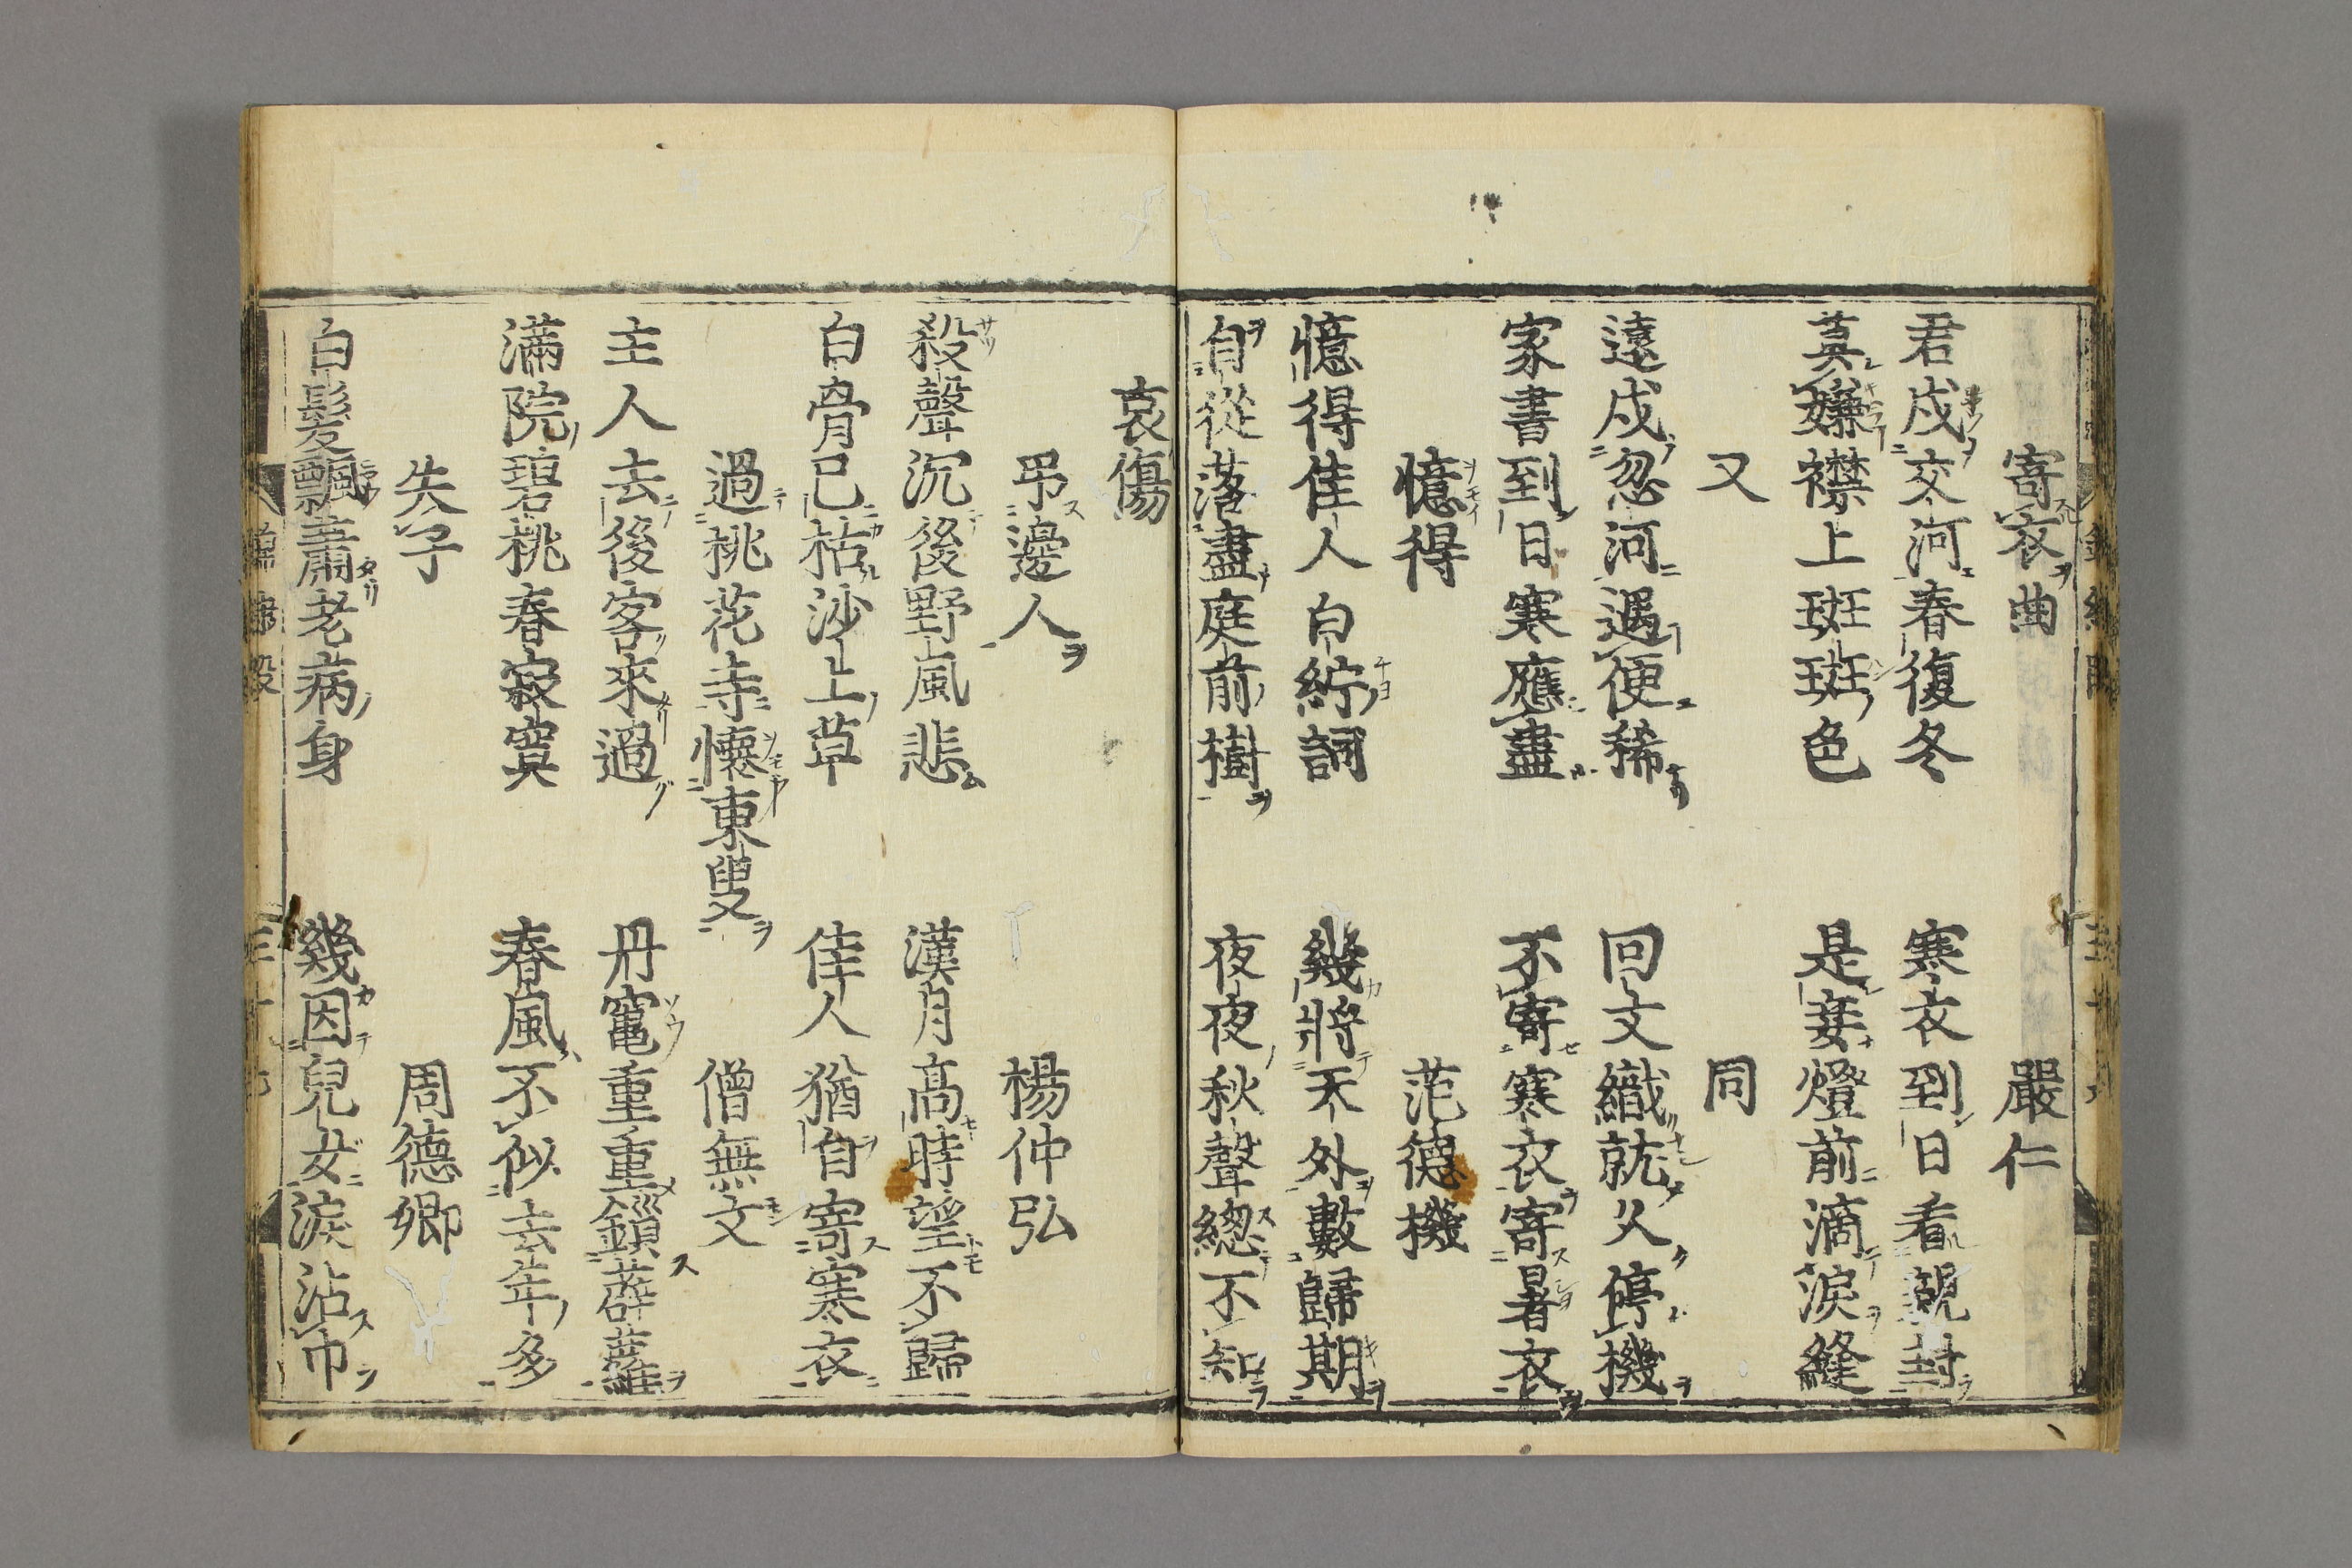 寄衣曲 嚴仁
君戍交河春復冬 寒衣到日看親封
莫嫌襟上斑斑色 是妾燈前滴淚縫
又 同
遠戍忽河遇便稀 回文織就久停機
家書到日寒應盡 不寄寒衣寄暑衣
憶得 范德機
憶得佳人白紵詞 幾將天外數歸期
自從落盡庭前樹 夜夜秋聲總不知
哀傷
弔邊人 楊仲弘
殺聲沉後野風悲 漢月高時望不歸
白骨已枯沙上草 佳人猶自寄寒衣
過桃花寺懷東叟 僧無文
主人去後客來過 丹竈重重鎖薜蘿
滿院碧桃春寂寞 春風不似去年多
失子 周德卿
白髮飄蕭老病身 幾因兒女淚沾巾